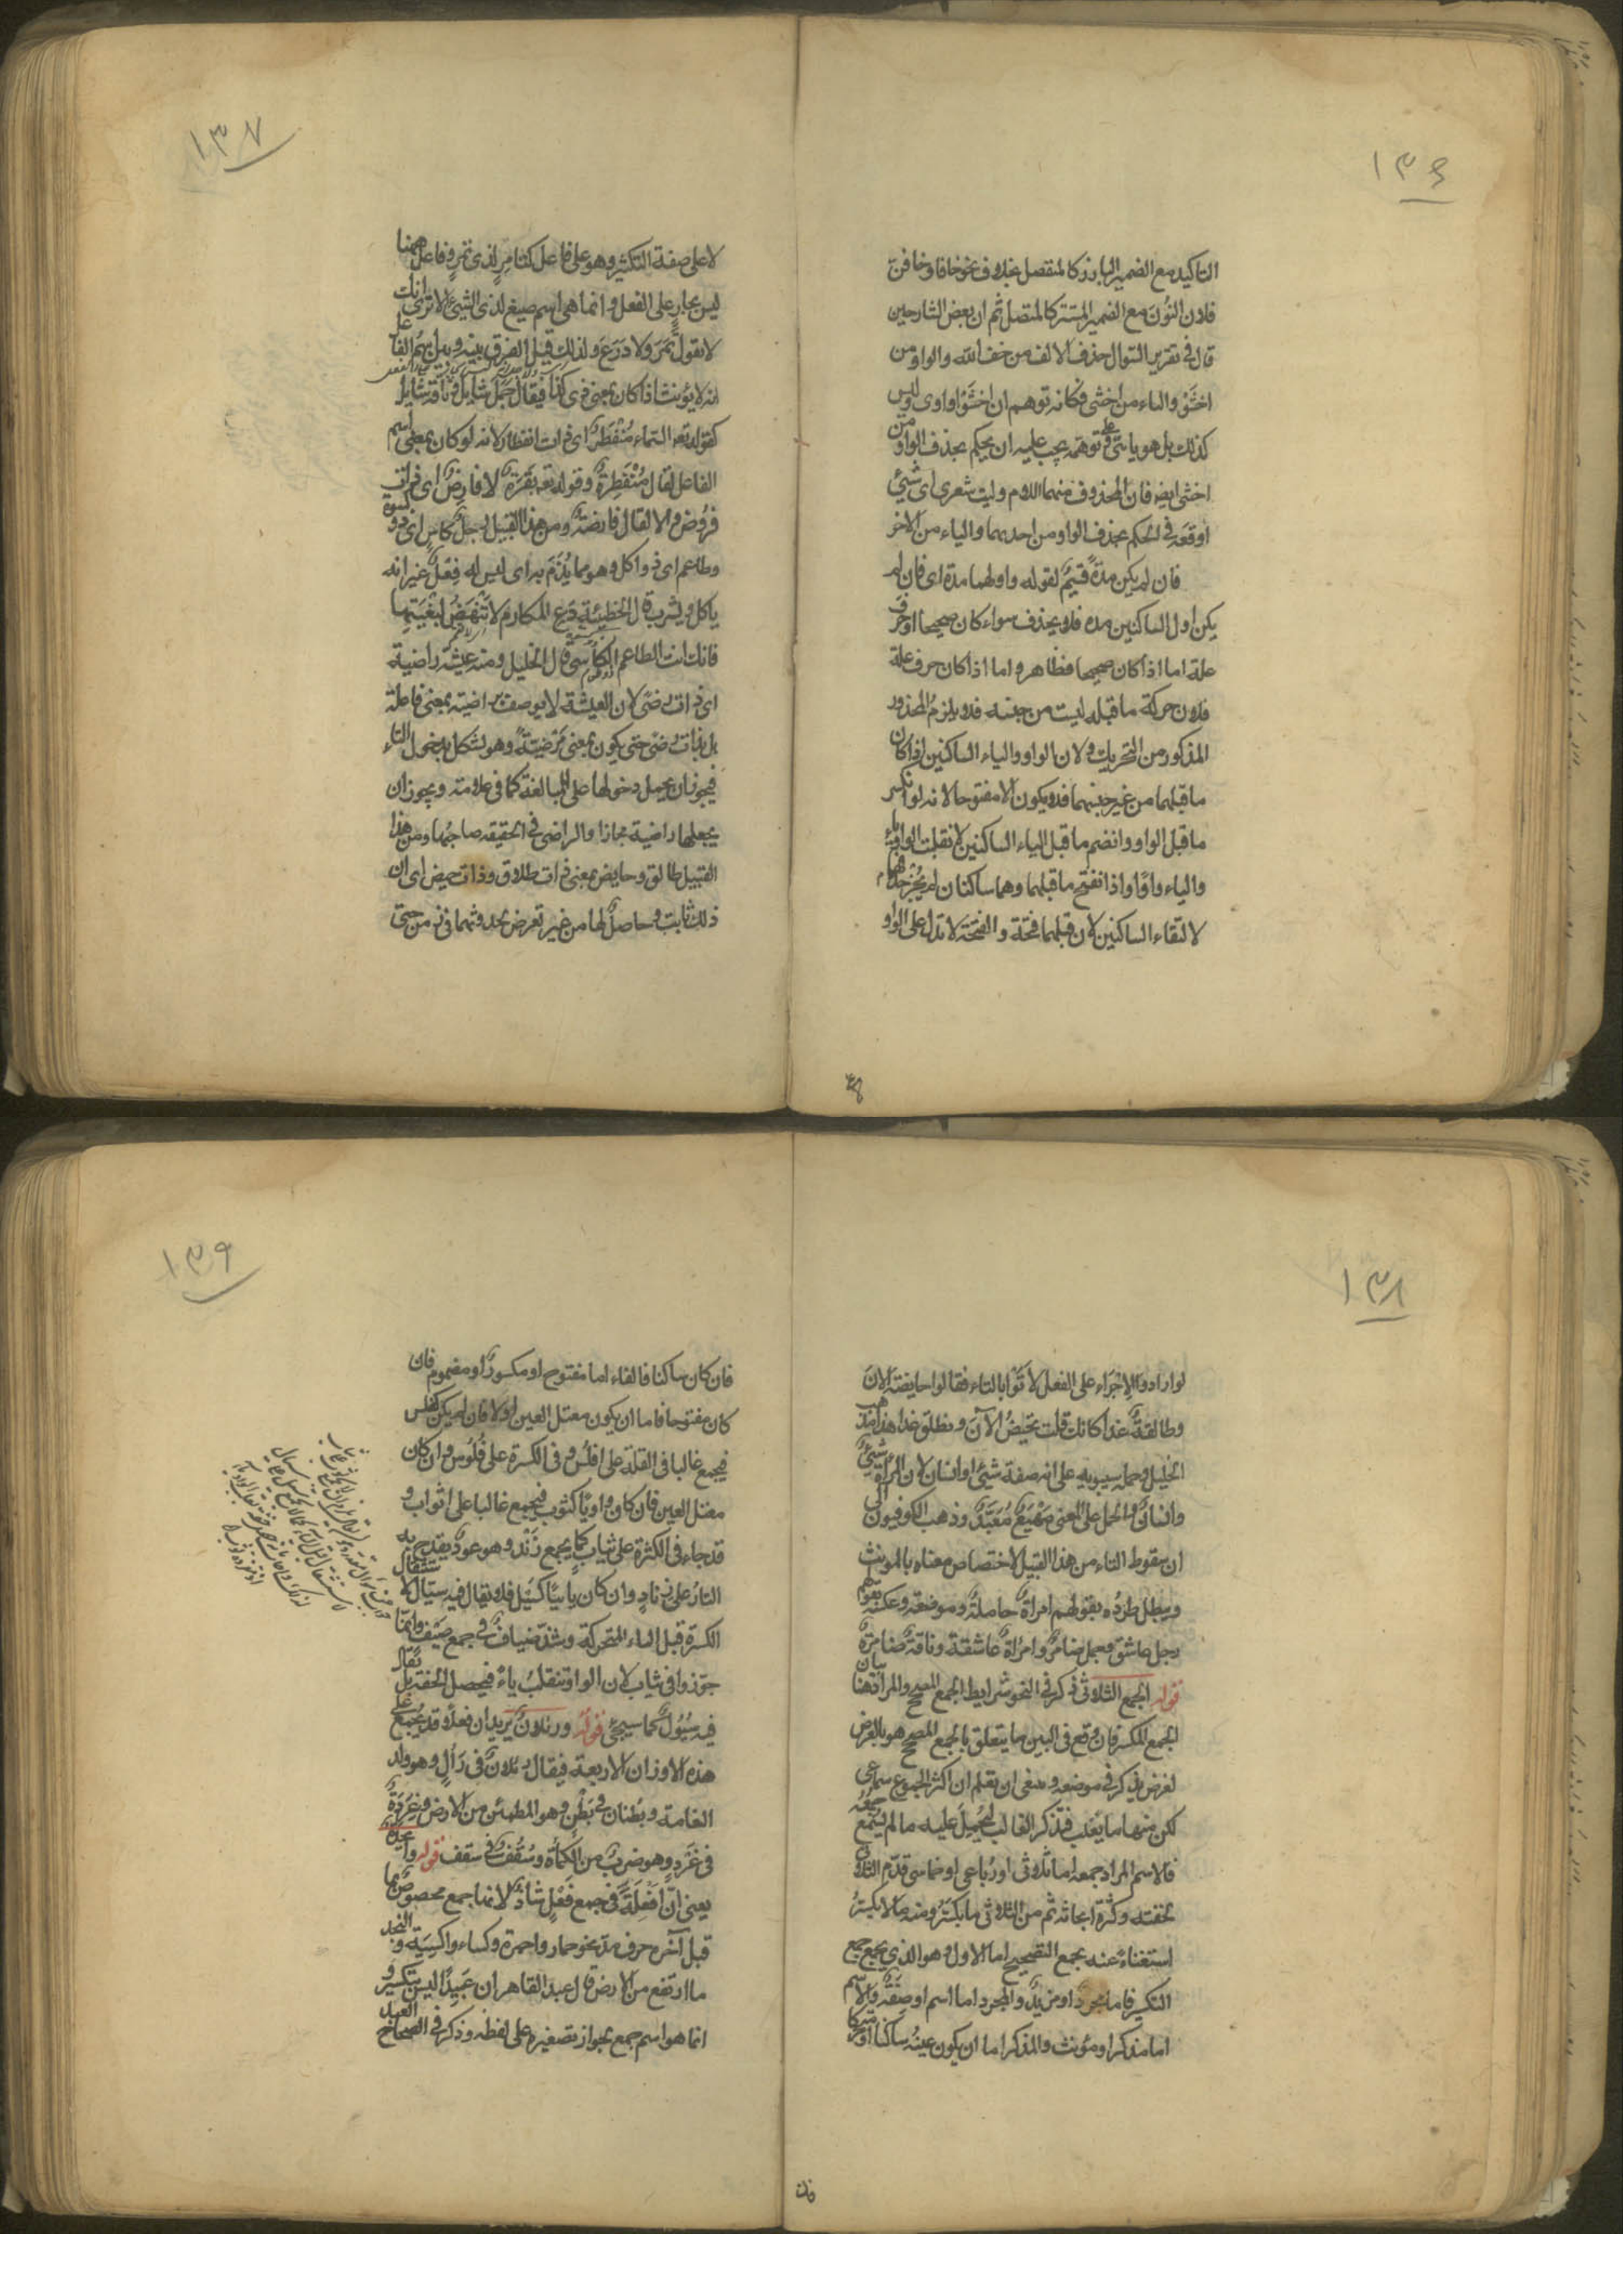 ١٣٦
التاكيد مع الضمير البارز كالمنفصل بخلاف نحو خافا وخافنّ
فلان النون مع الضمير المستتر كالمتصل ثم ان بعض الشارحين
قال فى تقرير السوال حذف الالف من خف الله والواو من
اخشَوْ والياء من اخشى فكانه توهم ان اخشوا واوى وليس
كذلك بل هو يائى على توهمه يجب عليه ان يحكم بحذف الواو من
اخشى ايض فان المحذوف منهما اللام وليت شعرى اى شيئ
اوقعه فى الحكم بحذف الواو من احديهما والياء من الاخر
فان لم يكن مدّة قسيم لقوله واولهما مدة اى فان لم
يكن اول الساكنين مده فلا يحذف سواء كان صحيحا او حرف
علة اما اذا كان صحيحا فظاهر واما اذا كان حرف علة
فلان حركة ما قبله ليست من جنسه فلا يلزم المحذور
المذكور من التحريك ولان الواو والياء الساكنين اذا كان
ما قبلهما من غير جنسهما فلا يكون الا مفتوحا لانه لو انكسر
ما قبل الواو وانضم ما قبل الياء الساكنين لانقلبت الواو ياء
والياء واوًا واذا انفتح ما قبلهما وهما ساكنان لم يجز حذفهما
لالتقاء الساكنين لان قبلهما فتحة والفتحة لا تدل على الواو
١٣٧
لا على صفة التكثير وهو على فاعل كتامرٍ لذى تمرٍ وفاعل ههنا
ليس بجارٍ على الفعل وانما هى اسم صيغ لذى الشيئ الا ترى انك
لا تقول تَمَرَ ولا دَرَعَ ولذلك قيل الفرق بينه وبين اسم الفاعل
انه لا يؤنث اذا كان بمعنى ذى كذا فيقال جمل شايل وناقة شايل
كقوله تعه السماء مُنْفَطِرٌ اى ذات انفطار لانه لو كان بمعنى اسم
الفاعل لقال مُنْفَطِرةٌ وقوله تعه بَقَرَةٌ لا فارِضٌ اى ذات
فُروض والا لقال فارضة ومن هذا القبيل رجل كاسٍ اى ذو كسوة
وطاعم اى ذو اكل وهو مما يُذَمّ به اى ليس له فِعْلٌ غير انه
ياكل ويشرب قال الحطيئة دَعِ المكارم لا تَنْهَضْ لبُغْيَتِها
فانك انت الطاعم الكاسى قال الخليل ومنه عيشة راضية
اى ذات رضًى لان العيشة لا يوصف براضية بمعنى فاعلة
بل بذات رضًى حتى يكون بمعنى مَرْضيّة وهو يشكل بدخول التاء
فيجوز ان يحمل دخولها على المبالغة كما فى علامة ويجوز ان
يجعلها راضية مجازا والراضى فى الحقيقه صاحبها ومن هذا
القبيل طالق وحايض بمعنى ذات طلاق وذات حيض اى ان
ذلك ثابت وحاصل لها من غير تعرض بحدوثهما فى زمن حتى
١٣٨
لو ارادوا الاِجْراء على الفعل لاَتَوْا بالتاء فقالوا حايضة الآنَ
وطالقةٌ غدا كانك قلت تحيضُ الآن وتطلق غدا هذا مذهب
الخليل وحمله سيبويه على انه صفة شيئ او انسان لان المراة شيئٌ
وانسانٌ والحمل على المعنى مَهْيَعٌ مُعَبَّدٌ وذهب الكوفيون الى
ان سقوط التاء من هذا القبيل لاختصاص معناه بالمونث
ويبطل طردُه بقولهم امراة حاملة وموضعة وعكسه بقولهم
رجل عاشق وجمل ضامر وامراة عاشقة وناقة ضامرة
قوله الجمع الثلاثى ذكر فى النحو شرايط الجمع الصحيح والمراد هنا بيان
الجمع المكسر فان وقع فى البين ما يتعلق بالجمع المصحح هو بالعرض
لغرض يذكر فى موضعه وينبغى ان يعلم ان اكثر الجموع سماعى
لكن منها ما يغلب فتذكر الغالب ليُحْمل عليه ما لم يُسمع جمعُه
فالاسم المراد جمعه اما ثلاثى او رُباعى او خماسى قدّم الثلاثى
لخفته وكثرة ابحاثه ثم من الثلاثى ما يكسّرُ ومنه ما لا يكسّرُ
استغناءً عنه بجمع التصحيح اما الاول وهو الذى يجمع جمع
التكسير فاما مجرد او مزيد والمجرد اما اسم او صفة والاسم
اما مذكر او مونث والمذكر اما ان يكون عينه ساكنا او متحركا
١٣٩
فان كان ساكنا فالفاء اما مفتوح او مكسور او مضموم فان
كان مفتوحا فاما ان يكون معتل العين او لا فان لم يكن كفلس
فيجمع غالبا فى القلة على افلُسٍ وفى الكثرة على فُلُوسٍ وان كان
معتل العين فان كان واويا كثوب فيجمع غالبا على اثواب و
قد جاء فى الكثرة على ثياب كما يجمع زَنْد وهو عود يقدح به
النارُ على زنادٍ وان كان يائيا كسَيْل فلا يقال فيه سيال لاستثقال
الكسرة قبل الياء المتحركة وشذ ضيافٌ فى جمع ضيف وانما
جوّزوا فى ثياب لان الواو تنقلب ياءً فيحصل الخفة بل يقال
فيه سُيُول كما سيجئ قوله ورئلانٌ يريد ان فَعْلا قد يُجمع على
هذه الاوزان الاربعة فيقال رئلانٌ فى رَألٍ وهو ولد
النعامة وبُطنان فى بَطْنٍ وهو المطمئن من الارض وغِرَدَةٌ
فى غَرْدٍ وهو ضرب من الكمأة وسُقُف فى سقف قوله وانجدة
يعنى انّ اَفْعِلَةً فى جمع فَعْلٍ شاذٌّ لانها جمع مخصوص بما
قبل آخره حرف مدّ نحو حمار واحمرة وكساء واكسية والنجد
ما ارتفع من الارض قال عبد القاهر ان عَبِيدًا ليس بتكسير و
انما هو اسم جمع بجواز تصغيره على لفظه وذكر فى الصحاح العبيد